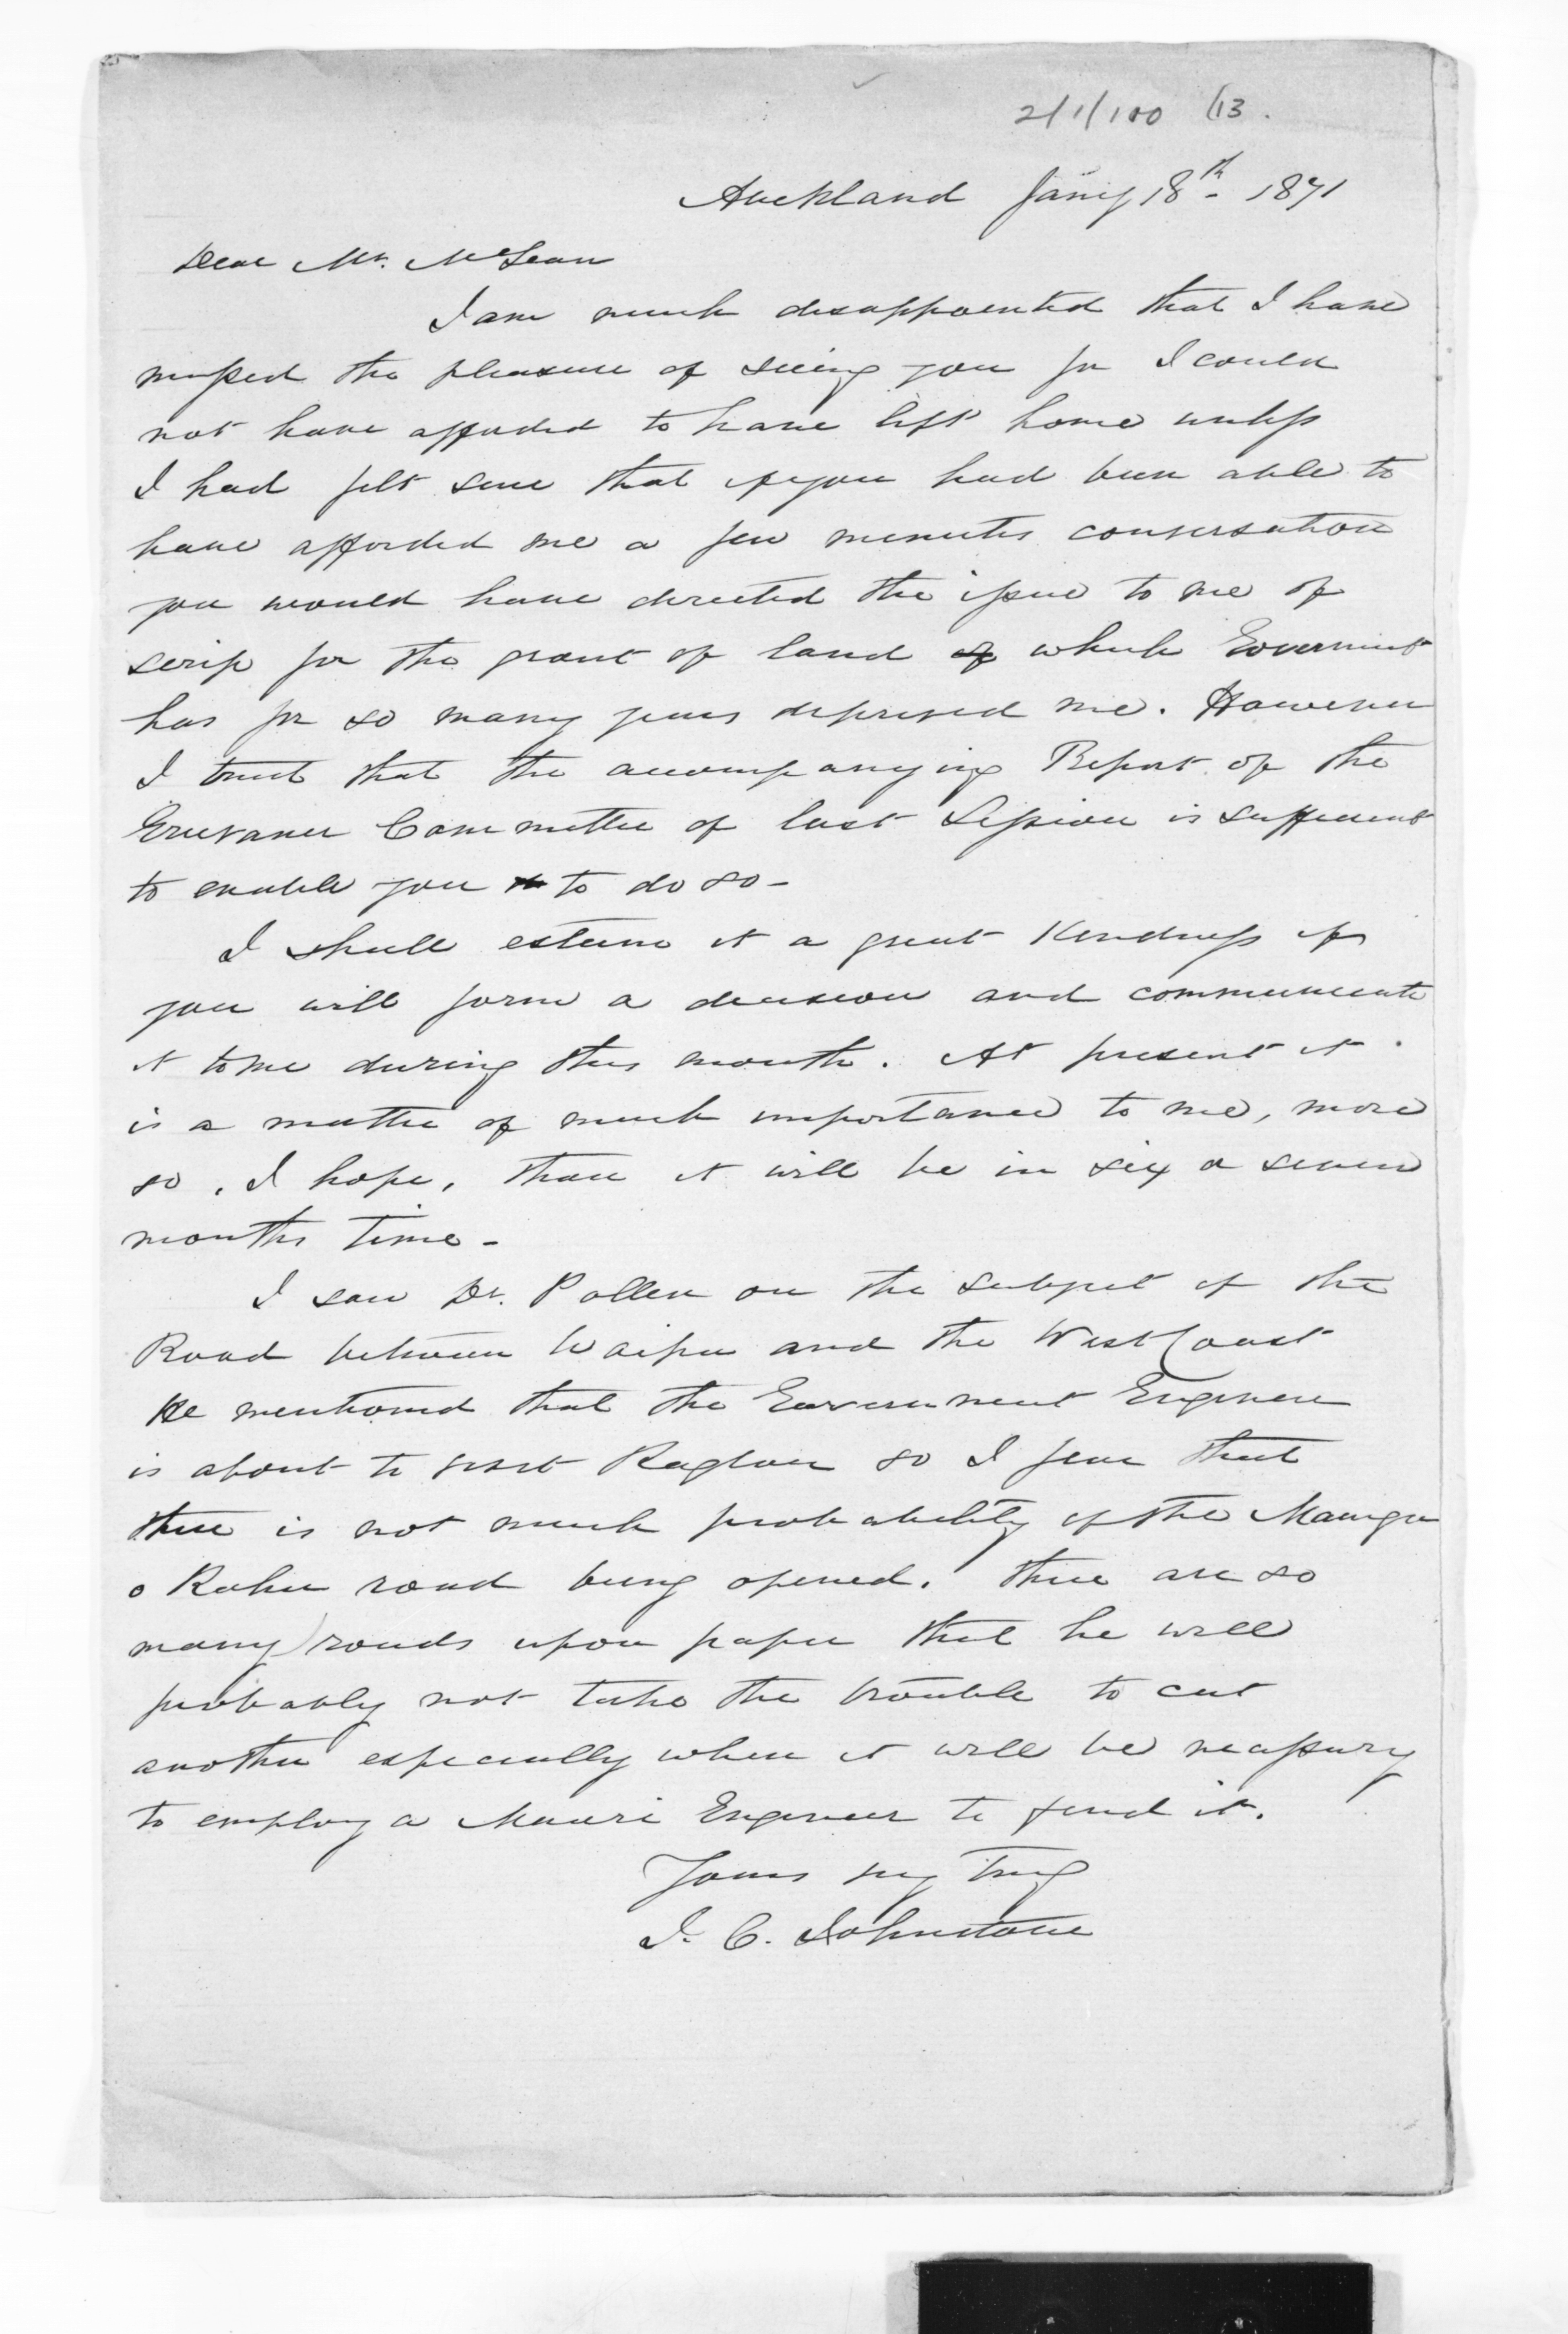 2/1/100 (13.
Auckland Jany 18th - 1871
Dear Mr. McLean
I am much disappointed that I have
missed the pleasure of seeing you for I could
not have afforded to have left home unless
I had felt sure that if you had been able to
have afforded me a few minutes conversation
you would have directed the issue to me of
scrip for the grant of land of which Government
has for so many years deprived me. However
I trust that the accompanying Report of the
Grievance Committee of last Session is sufficient
to enable you to do so -
I shall esteem it a great kindness if
you will form a decision and communicate
it to me during this month. At present it
is a matter of much importance to me, more
so, I hope, than it will be in six or seven
months time -
I saw Dr. Pollen on the subject of the
Road between Waipa and the West Coast
He mentioned that the Government Engineer
is about to visit Raglan so I fear that
there is not much probability of the Maunga
o Kahu road being opened. There are so
many roads upon paper that he will
probably not take the trouble to cut
another especially when it will be necessary
to employ a Maori Engineer to find it.
Yours very truly
J. C. Johnstone